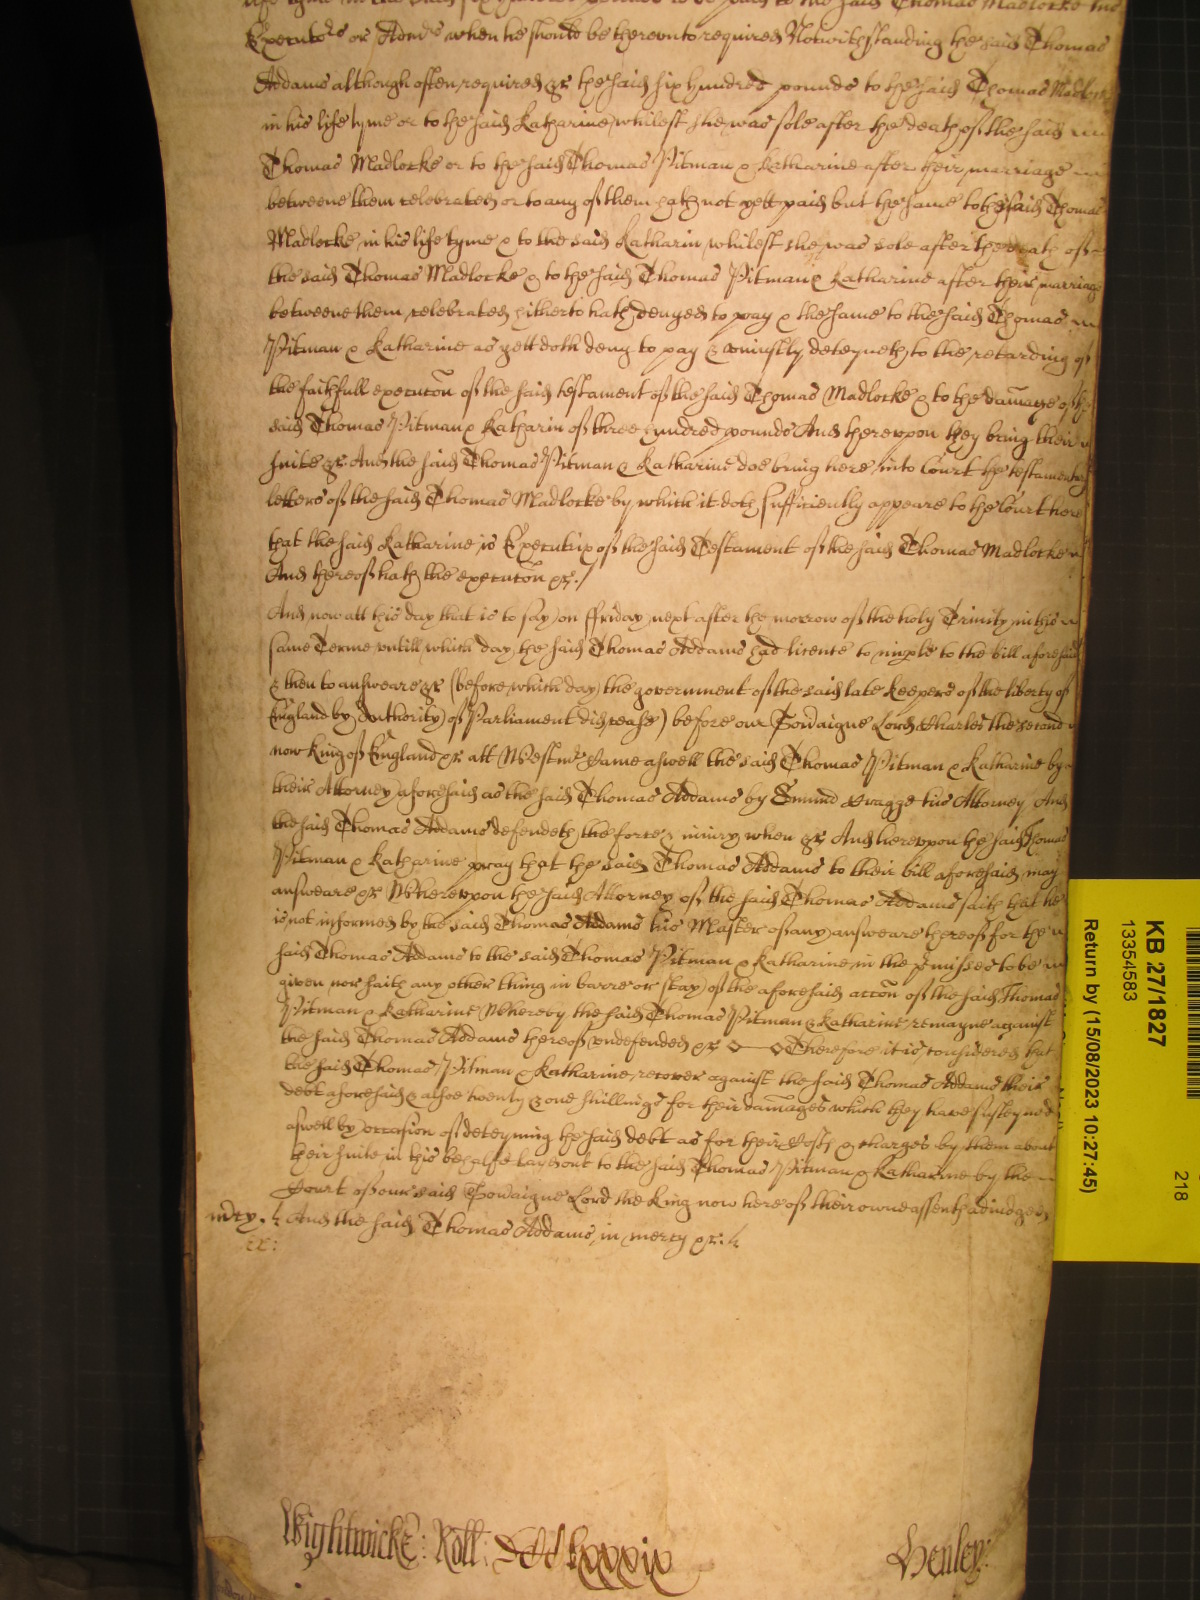 life tyme the said six hundred pounds to be paid to the said Thomas Madlocke his
Executors or Admrs when he should be therevnto required Notwithstanding the said Thomas
Addams although often required &c the said six hundred pounds to the said Thomas Madlocke
in his life tyme or to the said Katharine whilest she was sole after the death of the said
Thomas Madlocke or to the said Thomas Pitman & Katharine after their marriage
betweene them celebrated or to any of them hath not yett paid but the same to the said Thomas
Madlocke in his life tyme & to the said Katharin whilest she was sole after the death of
the said Thomas Madlocke & to the said Thomas Pitman & Katharine after their marriage
betweene them celebrated hitherto hath denyed to pay & the same to the said Thomas
Pitman & Katharine as yett doth deny to pay & vniustly deteyneth to the retarding of
the faithfull execucon of the said testament of the said Thomas Madlocke & to the damage of the
said Thomas Pitman & Katharin of three hundred pounds And herevpon they bring their
suite &c And the said Thomas Pitman & Katharine doe bring here into Court the testamentary
letters of the said Thomas Madlocke by which it doth sufficiently appeare to the Court here
that the said Katharine is Executrix of the said Testament of the said Thomas Madlocke
And thereof hath the execucon &c./
And now att this day that is to say on ffriday next after the morrow of the holy Trinity in this
same Terme vntill which day the said Thomas Addams had licence to imple to the bill aforesaid
& then to answeare &c (before which day the government of the said late Keepers of the liberty of
England by Authority of Parliament did cease) before our Soveraigne Lord Charles the second
now King of England &c att Westmr Came aswell the said Thomas Pitman & Katharine by
their Attorney aforesaid as the said Thomas Addams by Edmund Cragge his Attorney And
the said Thomas Addams defendeth the force & iniury when &c And herevpon the said Thomas
Pitman & Katharine pray that the said Thomas Addams to their bill aforesaid may
answeare &c Wherevpon the said Attorney of the said Thomas Addams saith that he
is not informed by the said Thomas Addams his Master of any answeare thereof for the
said Thomas Addams to the said Thomas Pitman & Katharine in the pmisses to be
given nor saith any other thing in barre or stay of the aforesaid accon of the said Thomas
Pitman & Katharine Whereby the said Thomas Pitman & Katharine remayne against
the said Thomas Addams thereof vndefended &c Therefore it is considered that
the said Thomas Pitman & Katharine recover against the said Thomas Addams their
debt aforesaid & alsoe twenty & one shillings for their damages which they have susteyned
aswell by occasion of deteyning the said debt as for their Costs & charges by them about
their suite in this behalfe layd out to the said Thomas Pitman & Katharine by the
Court of our said Soveraigne Lord the King now here of their owne assent adiudged
mcy. And the said Thomas Addams in mercy &c.
Wightwicke: Roll: lxxxix
Henley:
KB 27/1827
13354583
Return by (15/08/2023 10:27:45)
218